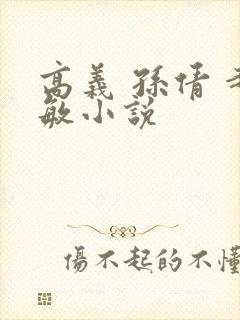 高義 孫倩
敏小說
傷不起的不懂